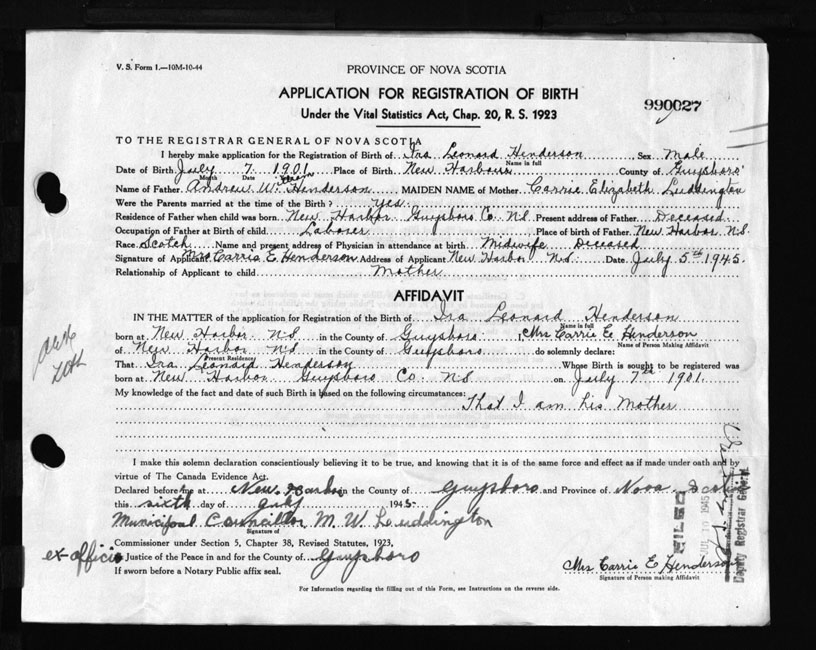 V. S. Form 1.—10M-10-44
PROVINCE OF NOVA SCOTIA
APPLICATION FOR REGISTRATION OF BIRTH
990027
Under the Vital Statistics Act, Chap. 20, R. S. 1923
TO THE REGISTRAR GENERAL OF NOVA SCOTIA
I hereby make application for the Registration of Birth of Ira Leonard Henderson, Sex Male
Name in full
Date of Birth July 7 1901 Place of Birth New Harbour County of Guysboro
Month Date Year
Name of Father Andrew W. Henderson MAIDEN NAME of Mother Carrie Elizabeth Luddington
Were the Parents married at the time of the Birth? yes
Residence of Father when child was born New Harbor Guysboro Co. N.S. Present address of Father Deceased
Occupation of Father at Birth of child Laborer Place of birth of Father New Harbor N.S.
Race Scotch Name and present address of Physician in attendance at birth Midwife Deceased
Signature of Applicant Mrs Carrie E Henderson Address of Applicant New Harbor N.S. Date July 5th 1945.
Relationship of Applicant to child Mother
AFFIDAVIT
IN THE MATTER of the application for Registration of the Birth of Ira Leonard Henderson
Name in full
born at New Harbor N.S in the County of Guysboro I, Mrs Carrie E Henderson
Name of Person Making Affidavit
of New Harbor N.S in the County of Guysboro do solemnly declare:
Present Residence
That Ira Leonard Henderson Whose Birth is sought to be registered was
born at New Harbor Guysboro Co. N.S on July 7th 1901.
My knowledge of the fact and date of such Birth is based on the following circumstances:
That I am his Mother
I make this solemn declaration conscientiously believing it to be true, and knowing that it is of the same force and effect as if made under oath and by
virtue of The Canada Evidence Act.
Declared before me at New Harbor in the County of Guysboro and Province of Nova Scotia
this sixth day of July 1945
Municipal Councillor M. W. Luddington
Signature of
Commissioner under Section 5, Chapter 38, Revised Statutes, 1923,
ex-officio Justice of the Peace in and for the County of Guysboro
If sworn before a Notary Public affix seal.
Mrs Carrie E Henderson
Signature of Person making Affidavit
For Information regarding the filling out of this Form, see Instructions on the reverse side.
FILED
JUL 10 1945
Deputy Registrar General